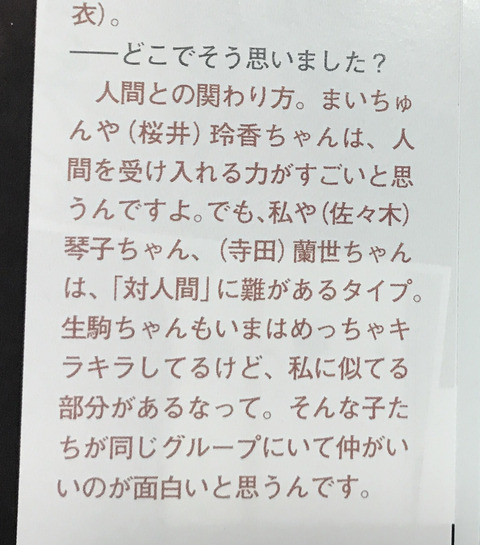 衣）。
――どこでそう思いました？
　人間との関わり方。まいちゅ
んや（桜井）玲香ちゃんは、人
間を受け入れる力がすごいと思
うんですよ。でも、私や（佐々木）
琴子ちゃん、（寺田）蘭世ちゃん
は、「対人間」に難があるタイプ。
生駒ちゃんもいまはめっちゃキ
ラキラしてるけど、私に似てる
部分があるなって。そんな子た
ちが同じグループにいて仲がい
いのが面白いと思うんです。